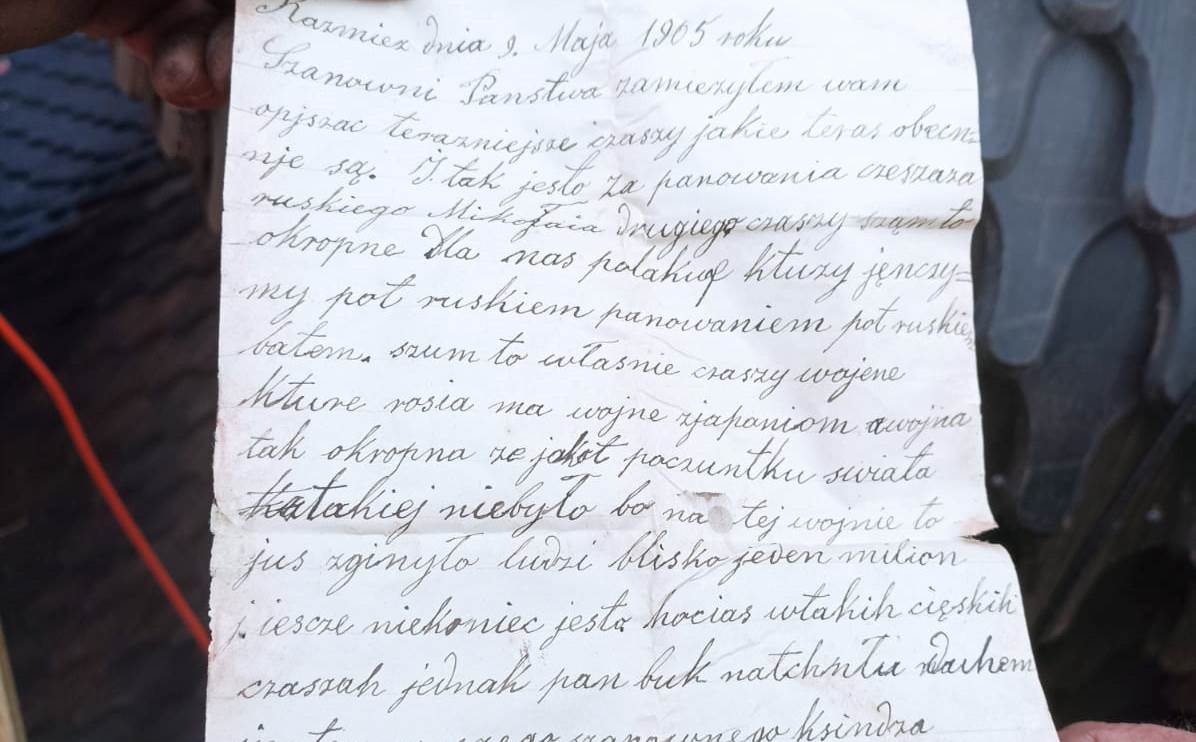 Kazmiez dnia 9. Maja 1905 roku
Szanowni Panstwa zamiezylem wam
opjszac terazniejsze czaszy jakie teras obecn=
nje są. I tak jesto za panowania czeszaza
ruskiego Mikołaia drugiego czaszy sząmto
okropne dla nas polakuf ktuzy jęnczy=
my pot ruskiem panowaniem pot ruskiem
batem. szum to własnie czaszy wojene
kture rosia ma wojne zjapaniom awojna
tak okropna ze jakot poczuntku swiata
takiej niebyło bo na tej wojnie to
jus zgineło ludzi blisko jeden milion
j iescze niekoniec jesto hocias wtakih cięskih
czaszah jednak pan buk natchnłu duchem
szanownego ksindza